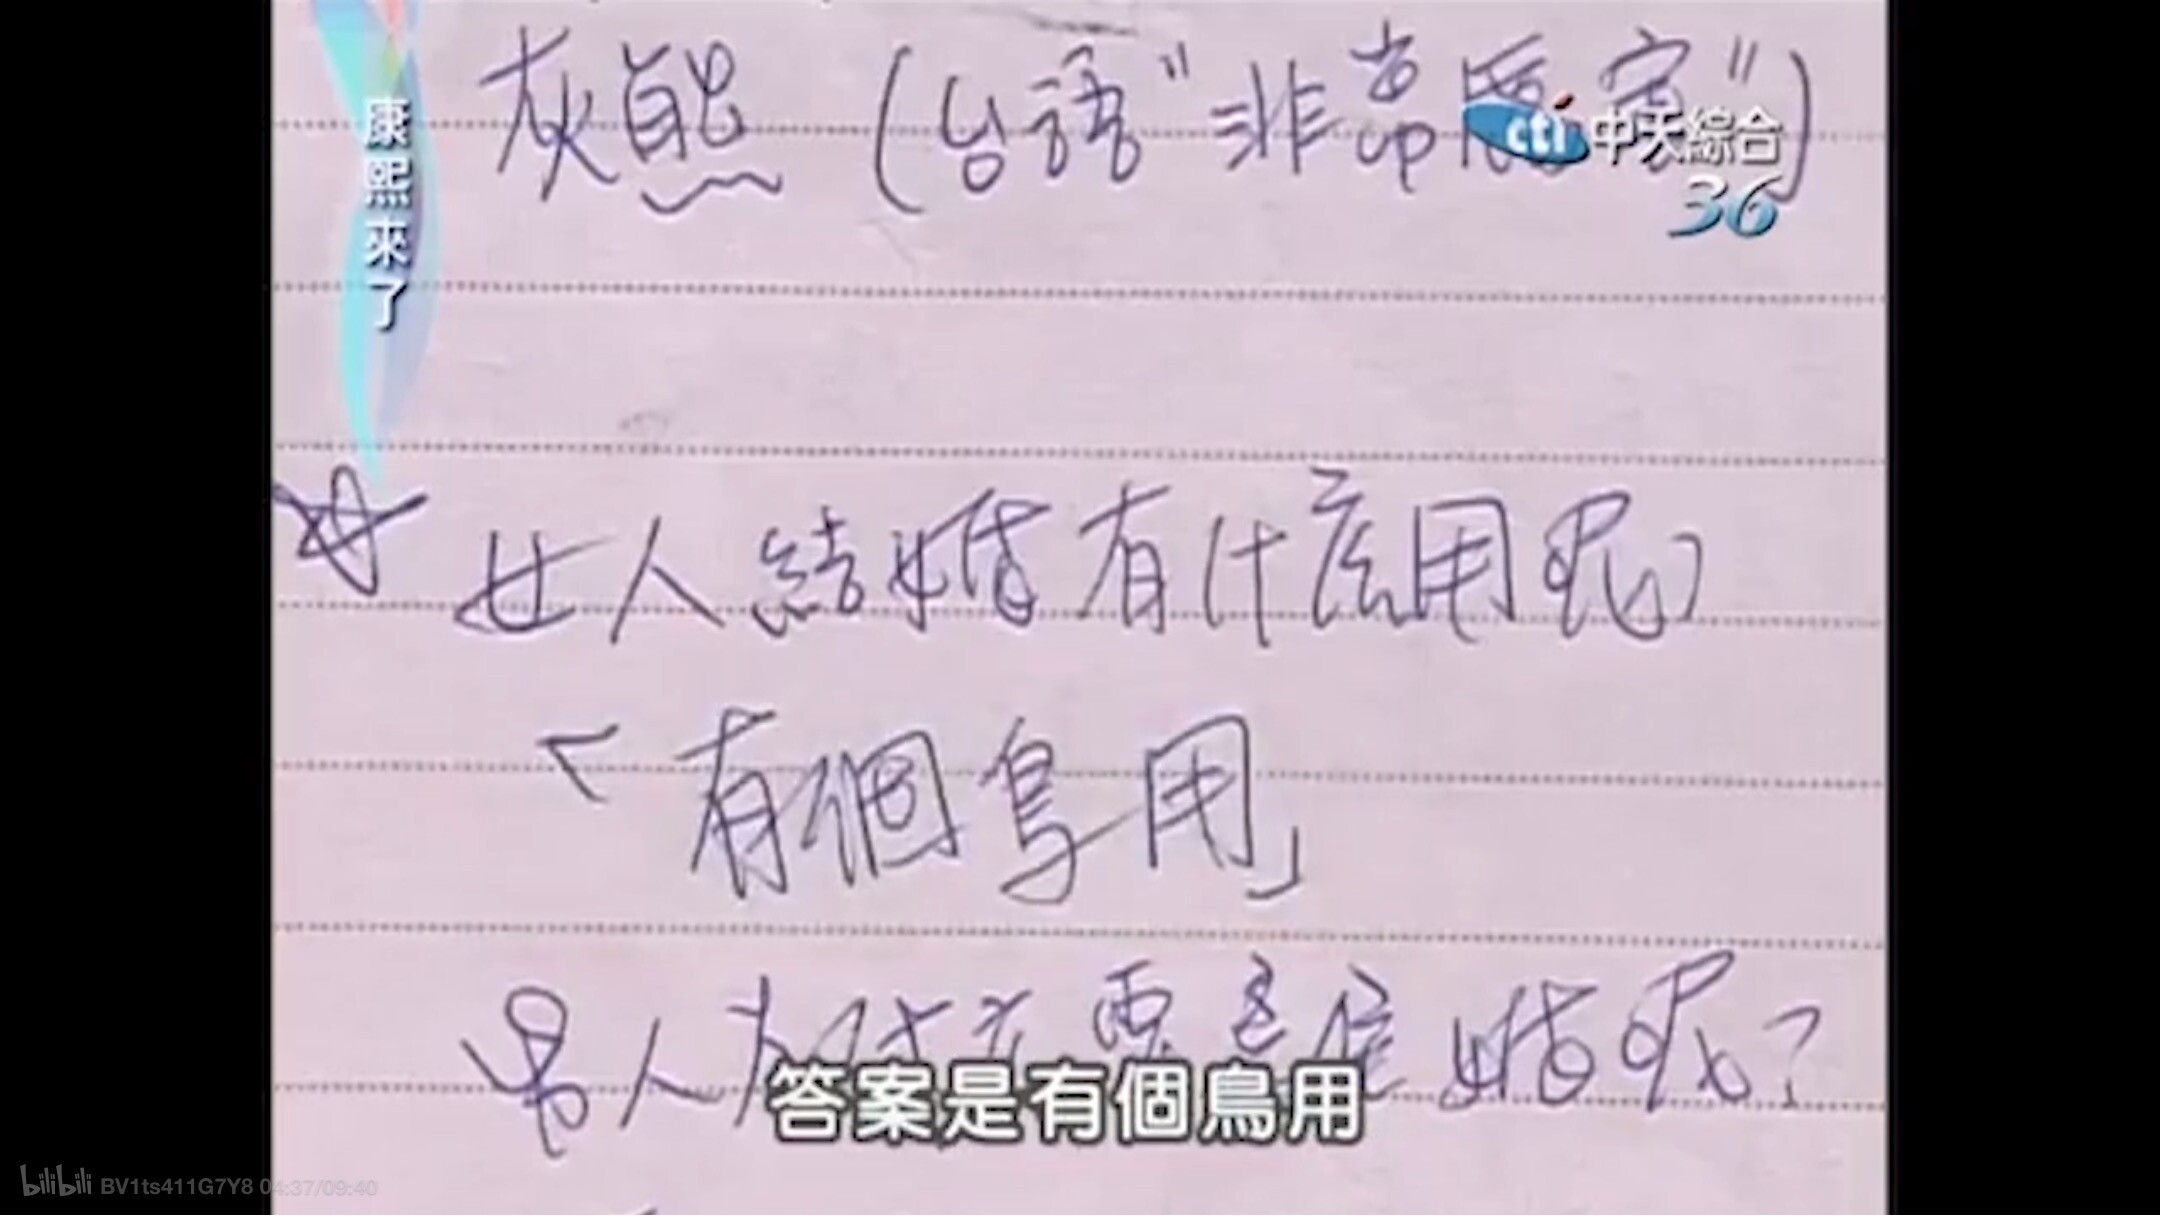 康熙來了
灰熊（台語"非常
cti中天綜合
36
女人結婚有什麼用呢?
「有個鳥用」
男人為什么要結婚呢?
答案是有個鳥用
bilibili BV1ts411G7Y8 04:37/09:40